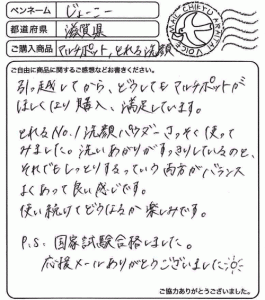 ペンネーム じょーこー
都道府県 滋賀県
ご購入商品 マルチポット、とれる洗顔
ご自由に商品に関するご感想などお書きください。
引っ越してから、どうしてもマルチポットが
ほしくなり購入、満足しています。
とれるNo.1洗顔パウダーさっそく使って
みました。洗いあがりがすっきりしているのと、
それでもしっとりするっていう両方がバランス
よくあって良い感じです。
使い続けてどうなるか楽しみです。
P.S. 国家試験合格しました。
応援メールありがとうございました
ご協力ありがとうございました。